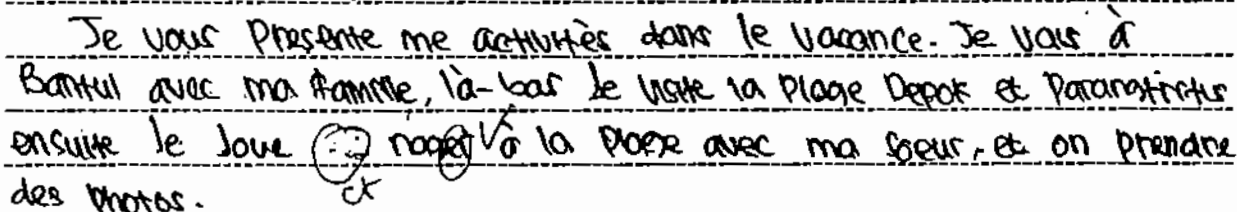 Je vous Presente me activitès dans le vacance. Je vais à
Bantul avec ma famille, là-bas Je visite la Plage Depok et Parangtritis
ensuite Je Joue et nager à la plage avec ma soeur, et on prendre
des photos.